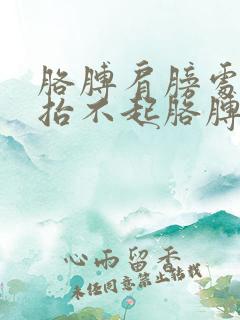 胳膊肩膀处
抬不起胳膊
心雨留香
未经同意禁止转载